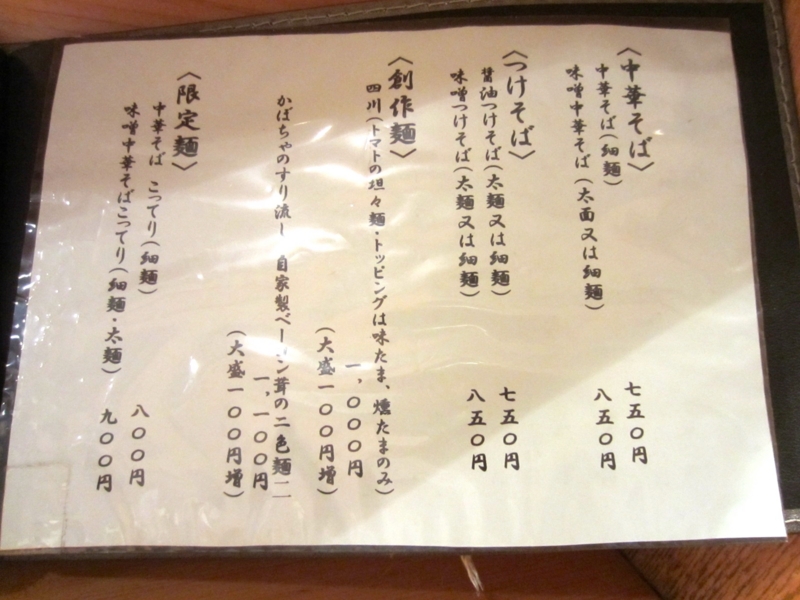 〈中華そば〉
中華そば(細麺) 七五〇円
味噌中華そば(太面又は細麺) 八五〇円
〈つけそば〉
醤油つけそば(太麺又は細麺) 七五〇円
味噌つけそば(太麺又は細麺) 八五〇円
〈創作麺〉
四川(トマトの坦々麺・トッピングは味たま、燻たまのみ)
一,〇〇〇円
(大盛一〇〇円増)
かぼちゃのすり流し 自家製ベーコン茸の二色麺
一,一〇〇円
(大盛一〇〇円増)
〈限定麺〉
中華そば こってり(細麺) 八〇〇円
味噌中華そばこってり(細麺・太麺) 九〇〇円